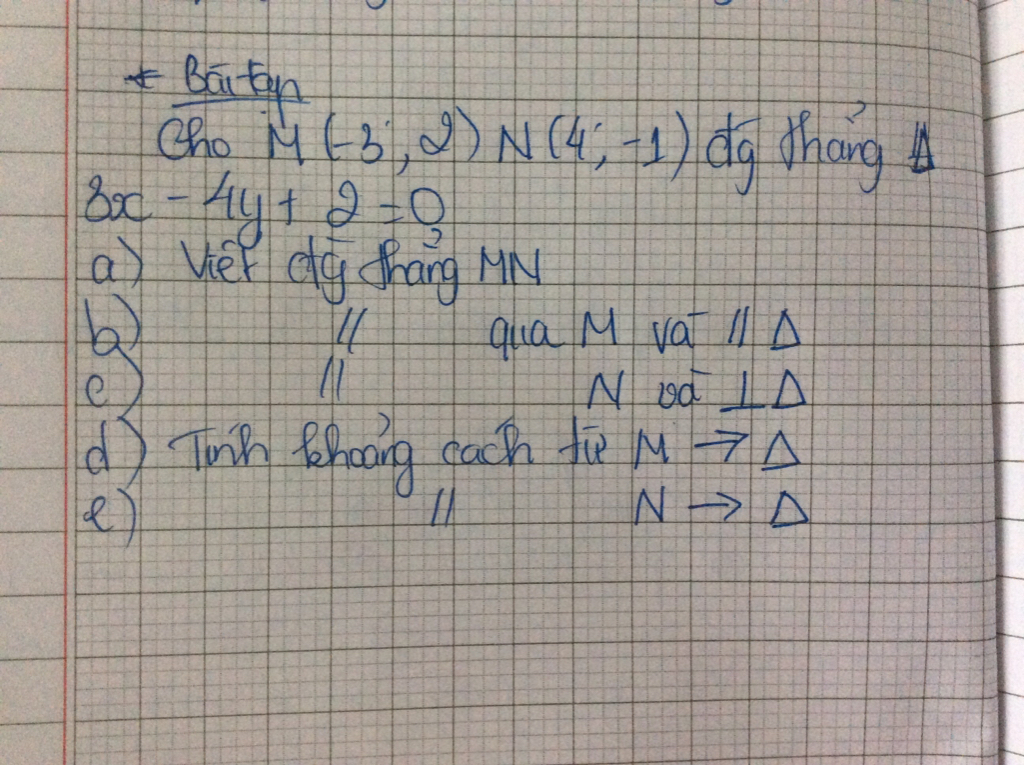 * Bài tập
Cho M (-3; 2) N (4; -1) đg thẳng Δ
3x - 4y + 2 = 0
a) Viết đg thẳng MN
b) // qua M và // Δ
c) // N và ⊥ Δ
d) Tính khoảng cách từ M → Δ
e) // N → Δ